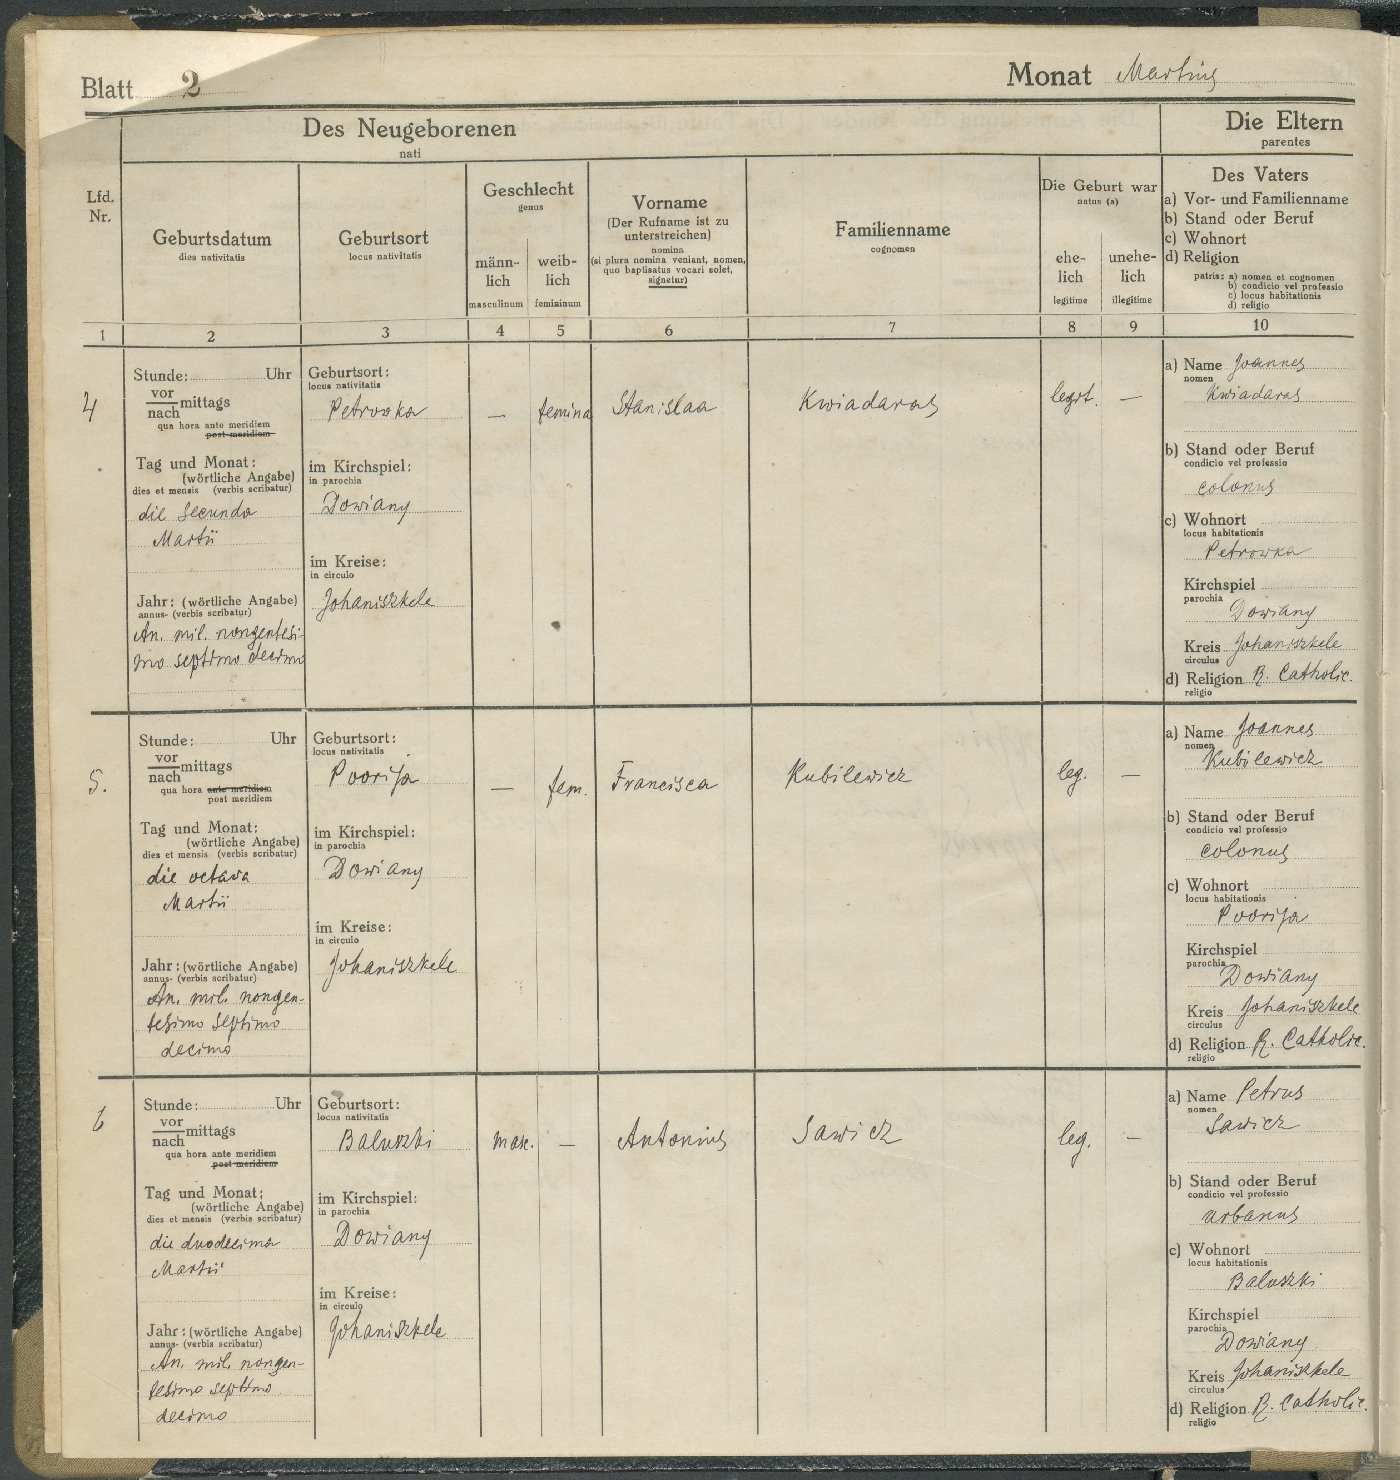 Blatt 2
Monat Martius
Des Neugeborenen
nati
Die Eltern
parentes
Lfd.
Nr.
Geburtsdatum
dies nativitatis
Geburtsort
locus nativitatis
Geschlecht
genus
männ-
lich
masculinum
weib-
lich
femininum
Vorname
(Der Rufname ist zu
unterstreichen)
nomina
(si plura nomina veniant, nomen,
quo baptisatus vocari solet,
signetur)
Familienname
cognomen
Die Geburt war
natus (a)
ehe-
lich
legitime
unehe-
lich
illegitime
Des Vaters
a) Vor- und Familienname
b) Stand oder Beruf
c) Wohnort
d) Religion
patris: a) nomen et cognomen
b) condicio vel professio
c) locus habitationis
d) religio
1 2 3 4 5 6 7 8 9 10
4
Stunde: Uhr
vor
nach mittags
qua hora ante meridiem
post meridiem
Tag und Monat:
(wörtliche Angabe)
dies et mensis (verbis scribatur)
die secunda
Martii
Jahr: (wörtliche Angabe)
annus- (verbis scribatur)
An. mil. nongentesi-
mo septimo decimo
Geburtsort:
locus nativitatis
Petrovka
im Kirchspiel:
in parochia
Dowiany
im Kreise:
in circulo
Johaniszkele
—
femina
Stanislaa
Kwiadaras
legit.
—
a) Name Joannes
nomen
Kwiadaras
b) Stand oder Beruf
condicio vel professio
colonus
c) Wohnort
locus habitationis
Petrowka
Kirchspiel
parochia
Dowiany
Kreis Johaniszkele
circulus
d) Religion R. Catholic.
religio
5.
Stunde: Uhr
vor
nach mittags
qua hora ante meridiem
post meridiem
Tag und Monat:
(wörtliche Angabe)
dies et mensis (verbis scribatur)
die octava
Martii
Jahr: (wörtliche Angabe)
annus- (verbis scribatur)
An. mil. nongen-
tesimo septimo
decimo
Geburtsort:
locus nativitatis
Poorija
im Kirchspiel:
in parochia
Dowiany
im Kreise:
in circulo
Johaniszkele
—
fem.
Francisca
Kubilewicz
leg.
—
a) Name Joannes
nomen
Kubilewicz
b) Stand oder Beruf
condicio vel professio
colonus
c) Wohnort
locus habitationis
Poorija
Kirchspiel
parochia
Dowiany
Kreis Johaniszkele
circulus
d) Religion R. Catholic.
religio
6
Stunde: Uhr
vor
nach mittags
qua hora ante meridiem
post meridiem
Tag und Monat:
(wörtliche Angabe)
dies et mensis (verbis scribatur)
die duodecima
Martii
Jahr: (wörtliche Angabe)
annus- (verbis scribatur)
An. mil. nongen-
tesimo septimo
decimo
Geburtsort:
locus nativitatis
Baluszki
im Kirchspiel:
in parochia
Dowiany
im Kreise:
in circulo
Johaniszkele
masc.
—
Antonius
Sawicz
leg.
—
a) Name Petrus
nomen
Sawicz
b) Stand oder Beruf
condicio vel professio
urbanus
c) Wohnort
locus habitationis
Baluszki
Kirchspiel
parochia
Dowiany
Kreis Johaniszkele
circulus
d) Religion R. Catholic.
religio